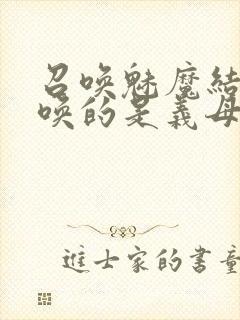 召唤魅魔结
唤的是義母
進士家的書童